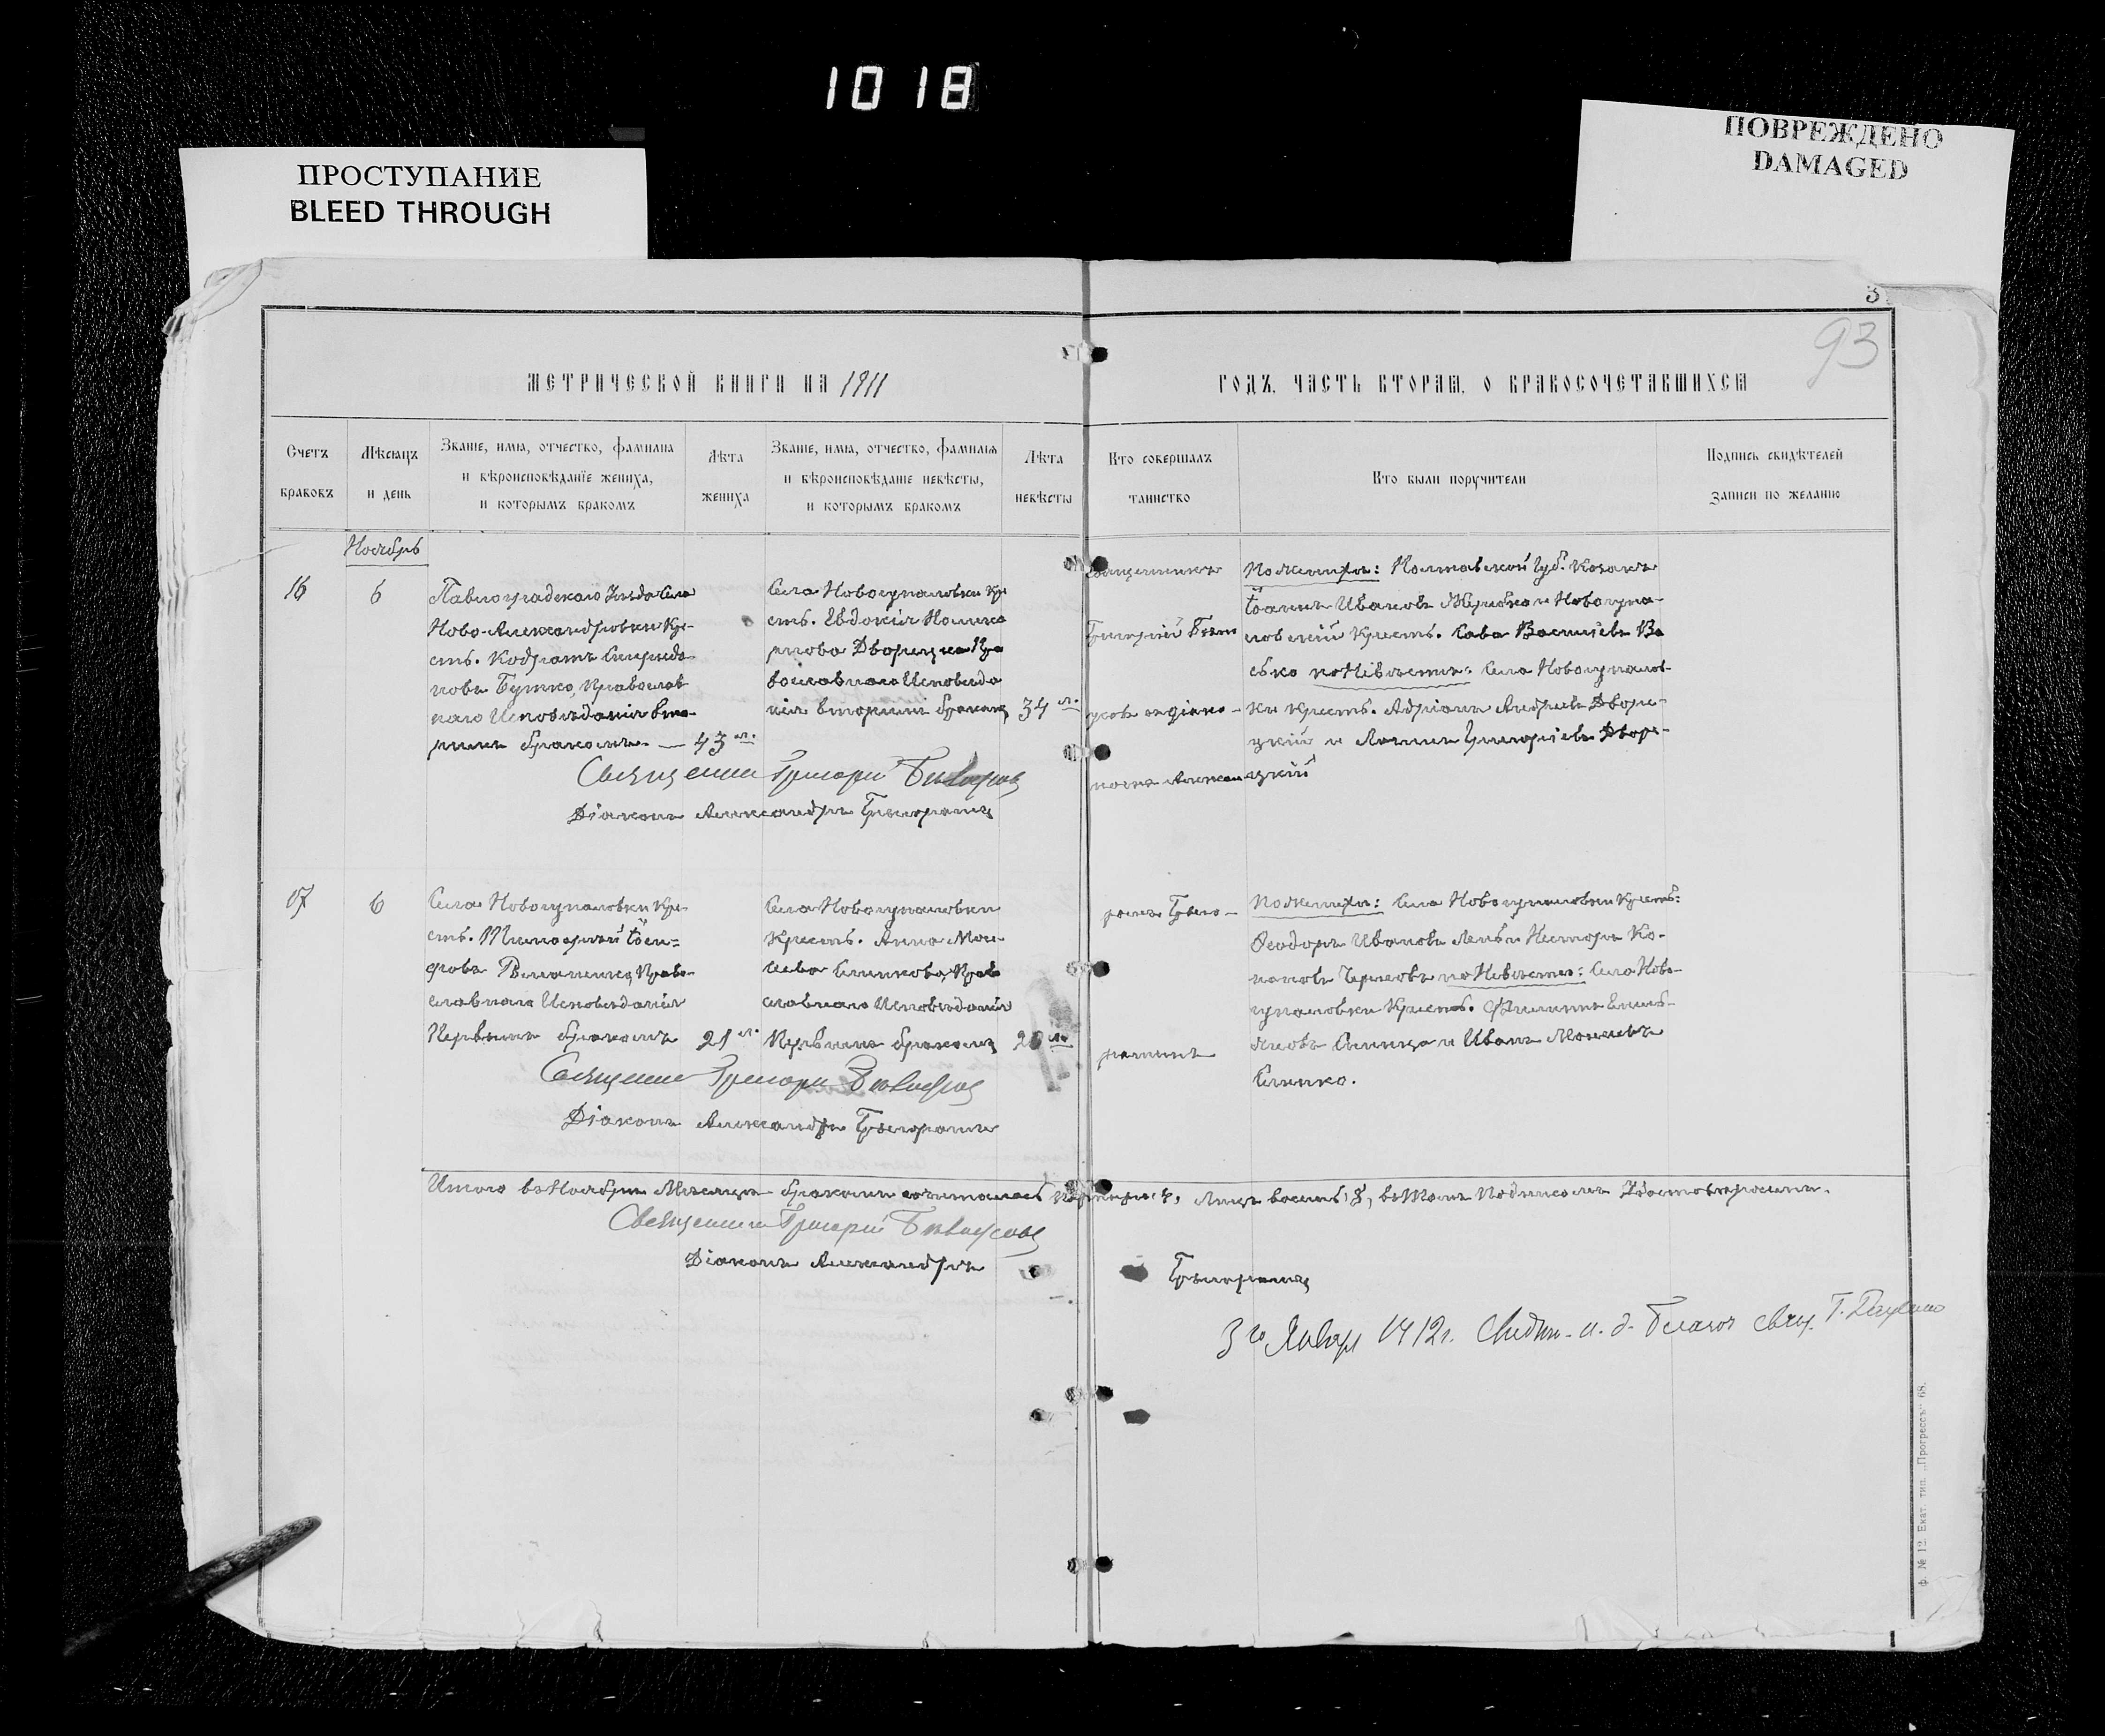 1018
ПРОСТУПАНИЕ
BLEED THROUGH
ПОВРЕЖДЕНО
DAMAGED
3
93
МЕТРИЧЕСКОЙ КНИГИ НА 1911
ГОДЪ, ЧАСТЬ ВТОРАЯ, О БРАКОСОЧЕТАВШИХСЯ
Счетъ браковъ
Мѣсяцъ и день
Званіе, имя, отчество, фамилія
и вѣроисповѣданіе жениха,
и которымъ бракомъ
Лѣта жениха
Званіе, имя, отчество, фамилія
и вѣроисповѣданіе невѣсты,
и которымъ бракомъ
Лѣта невѣсты
Кто совершалъ таинство
Кто были поручители
Подпись свидѣтелей
записи по желанію
Ноябрь
16
6
Павлоградскаго Уѣзда Села
Ново-Александровки Кре-
стъ. Кодратъ Спиридо
новъ Бутко, Православ
наго Исповѣданія вто-
рымъ бракомъ — 43 л.
Села Новогупаловки Кре
стъ. Евдокія Полика
рпова Дворецкая Пра
вославнаго Исповѣда
нія вторымъ бракомъ
34 л.
Священникъ
Григорій Бѣло
усовъ съ діако-
номъ Алексан
По женихѣ: Полтавской Губ. Козакъ
Іоаннъ Ивановъ и Новогупа-
ловскій Крестъ. Сава Василіевъ Ва
сько по Невѣстѣ: Села Новогупалов-
ки Крестъ. Адріанъ Андреевъ Дворе-
цкій и Григоріевъ Дворе-
цкій
Священник Григорий Белоусов
Діаконъ Александръ
17
6
Села Новогупаловки Кре-
стъ. Тимофей Іоси-
фовъ Право-
славнаго Исповѣданія
Первымъ бракомъ
21 л.
Села Новогупаловки
Крестъ. Анна Мои-
сеева Слинкова, Прав
славнаго Исповѣданія
Первымъ бракомъ
20 л.
ромъ
По женихѣ: Села Новогупаловки Крестъ:
Ѳеодоръ Ивановъ и Несторъ Ко-
ноновъ по Невѣстѣ: Села Ново-
гупаловки Крестъ. Филиппъ Емель-
яновъ и Иванъ Моисеевъ
Слинко.
Священник Григорий Белоусов
Діаконъ Александръ
Итого въ Ноябрѣ Мѣсяцѣ бракомъ сочеталось четыре 4, лицъ восемь 8, въ томъ Подписомъ Удостовѣряемъ.
Священник Григорий Белоусов
Діаконъ Александръ
3 го Январ 1912 г.
ф. № 12. Екат. тип. „Прогрессъ“ 68.